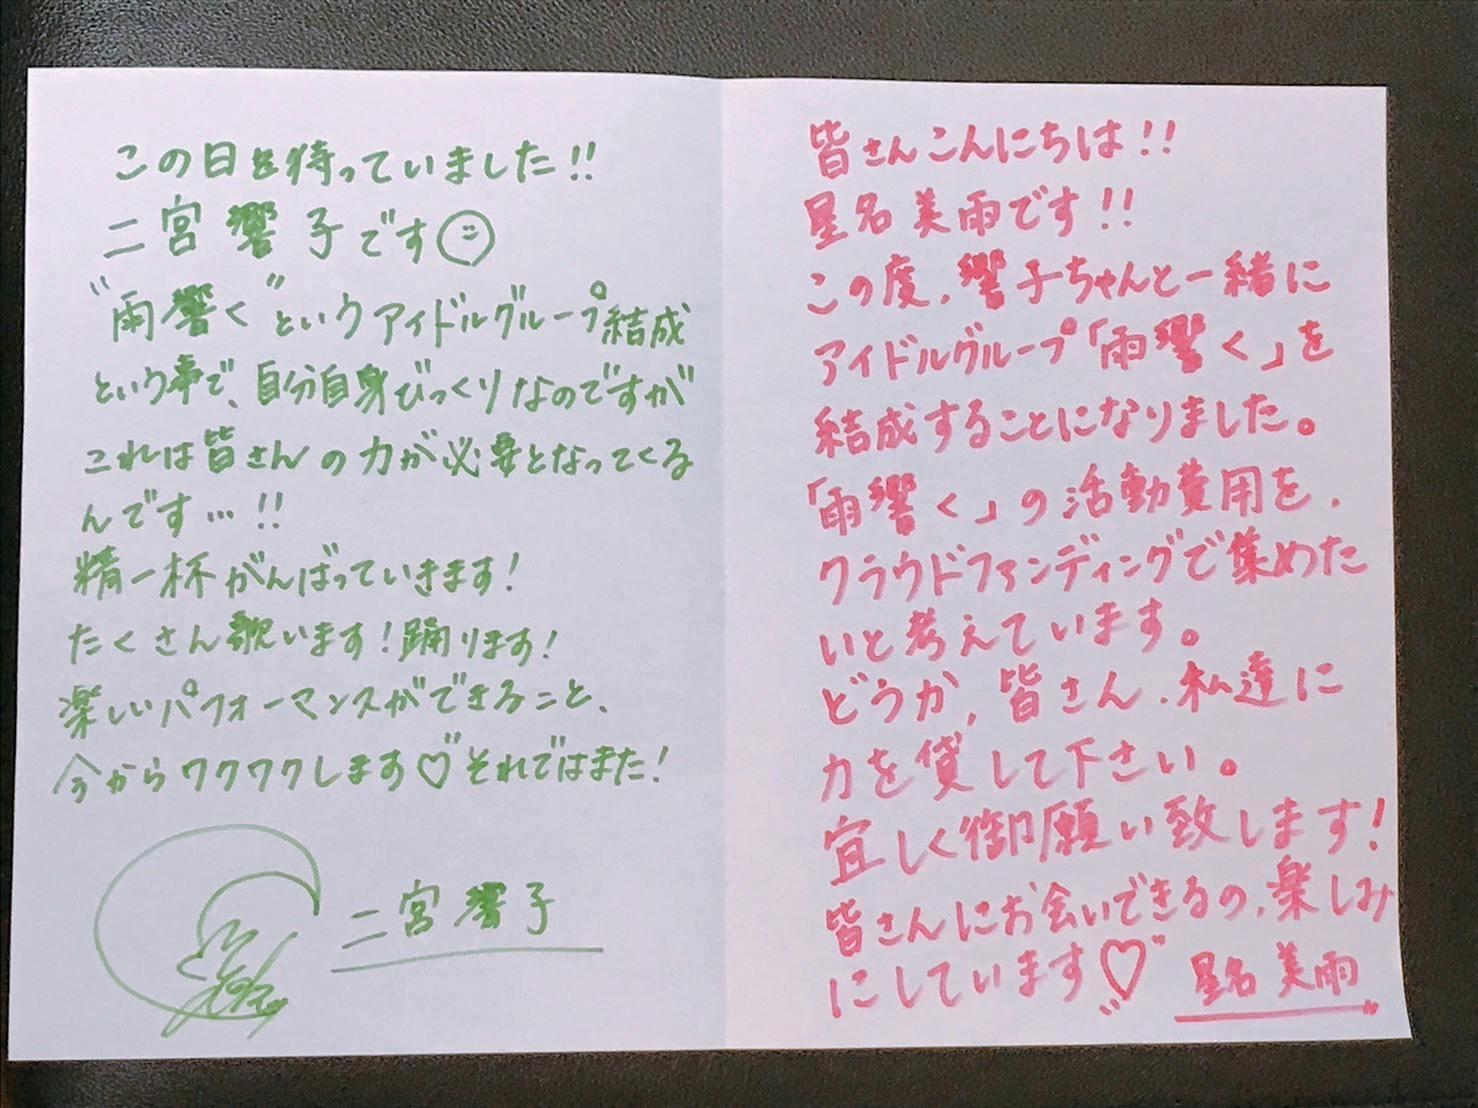 この日を待っていました!!
二宮響子です
"雨響く"というアイドルグループ結成
という事で、自分自身びっくりなのですが
これは皆さんの力が必要となってくる
んです…!!
精一杯がんばっていきます!
たくさん歌います!踊ります!
楽しいパフォーマンスができること、
今からワクワクします♡それではまた!
二宮響子
皆さんこんにちは!!
星名美雨です!!
この度、響子ちゃんと一緒に
アイドルグループ「雨響く」を
結成することになりました。
「雨響く」の活動費用を、
クラウドファンディングで集めた
いと考えています。
どうか、皆さん、私達に
力を貸して下さい。
宜しく御願い致します!
皆さんにお会いできるの、楽しみ
にしています♡
星名美雨